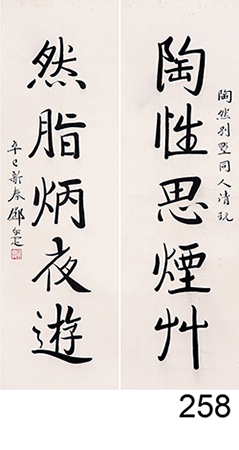 陶然別墅同人清玩
陶性思煙艸
然脂炳夜遊
辛巳新春
258